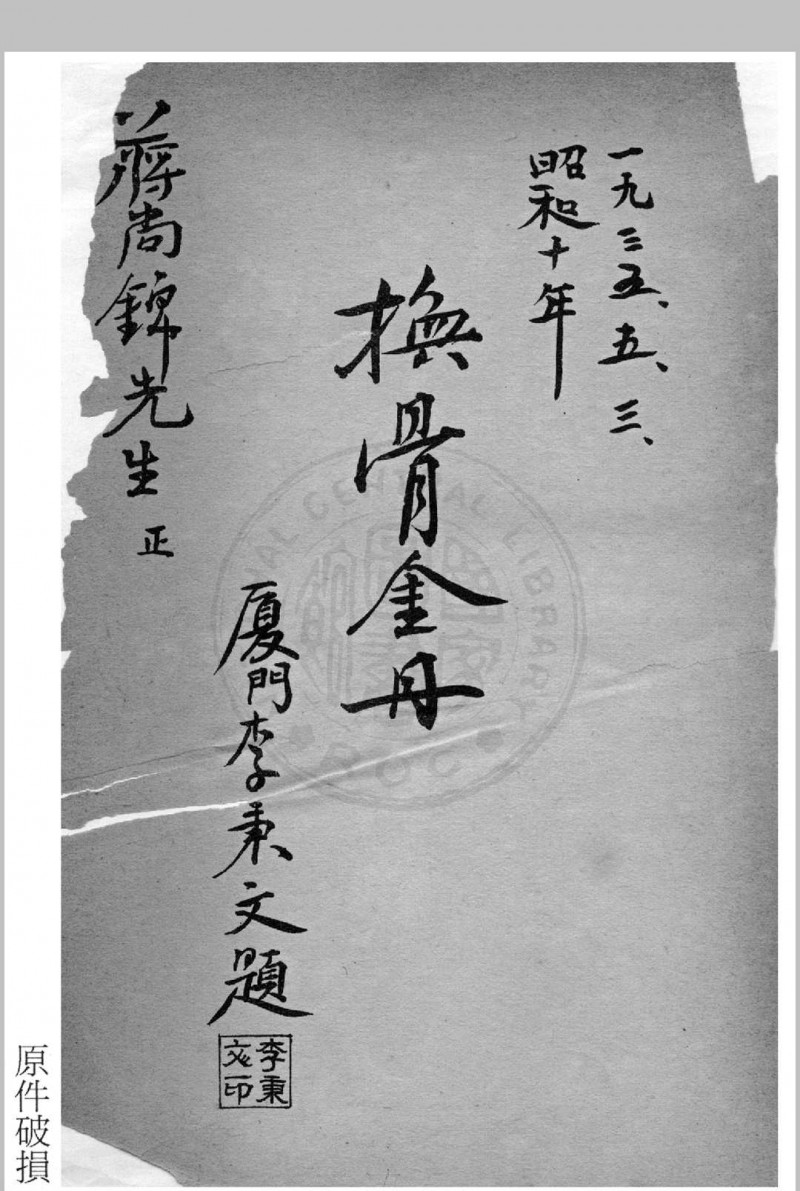 一九三五、五、三、
昭和十年
換骨金丹
厦門李秉文題
李秉
文印
蔣尚錦先生 正
原件破損
NATIONAL CENTRAL LIBRARY
ROC